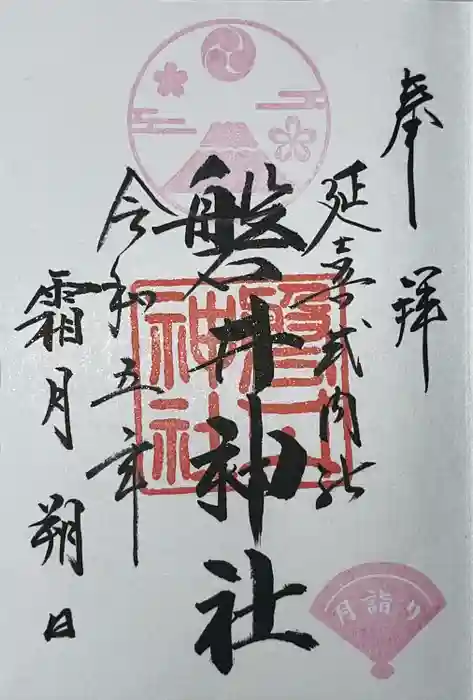 奉拝
延喜式内社
磐井神社
令和五年
霜月朔日
磐井神社
月詣り